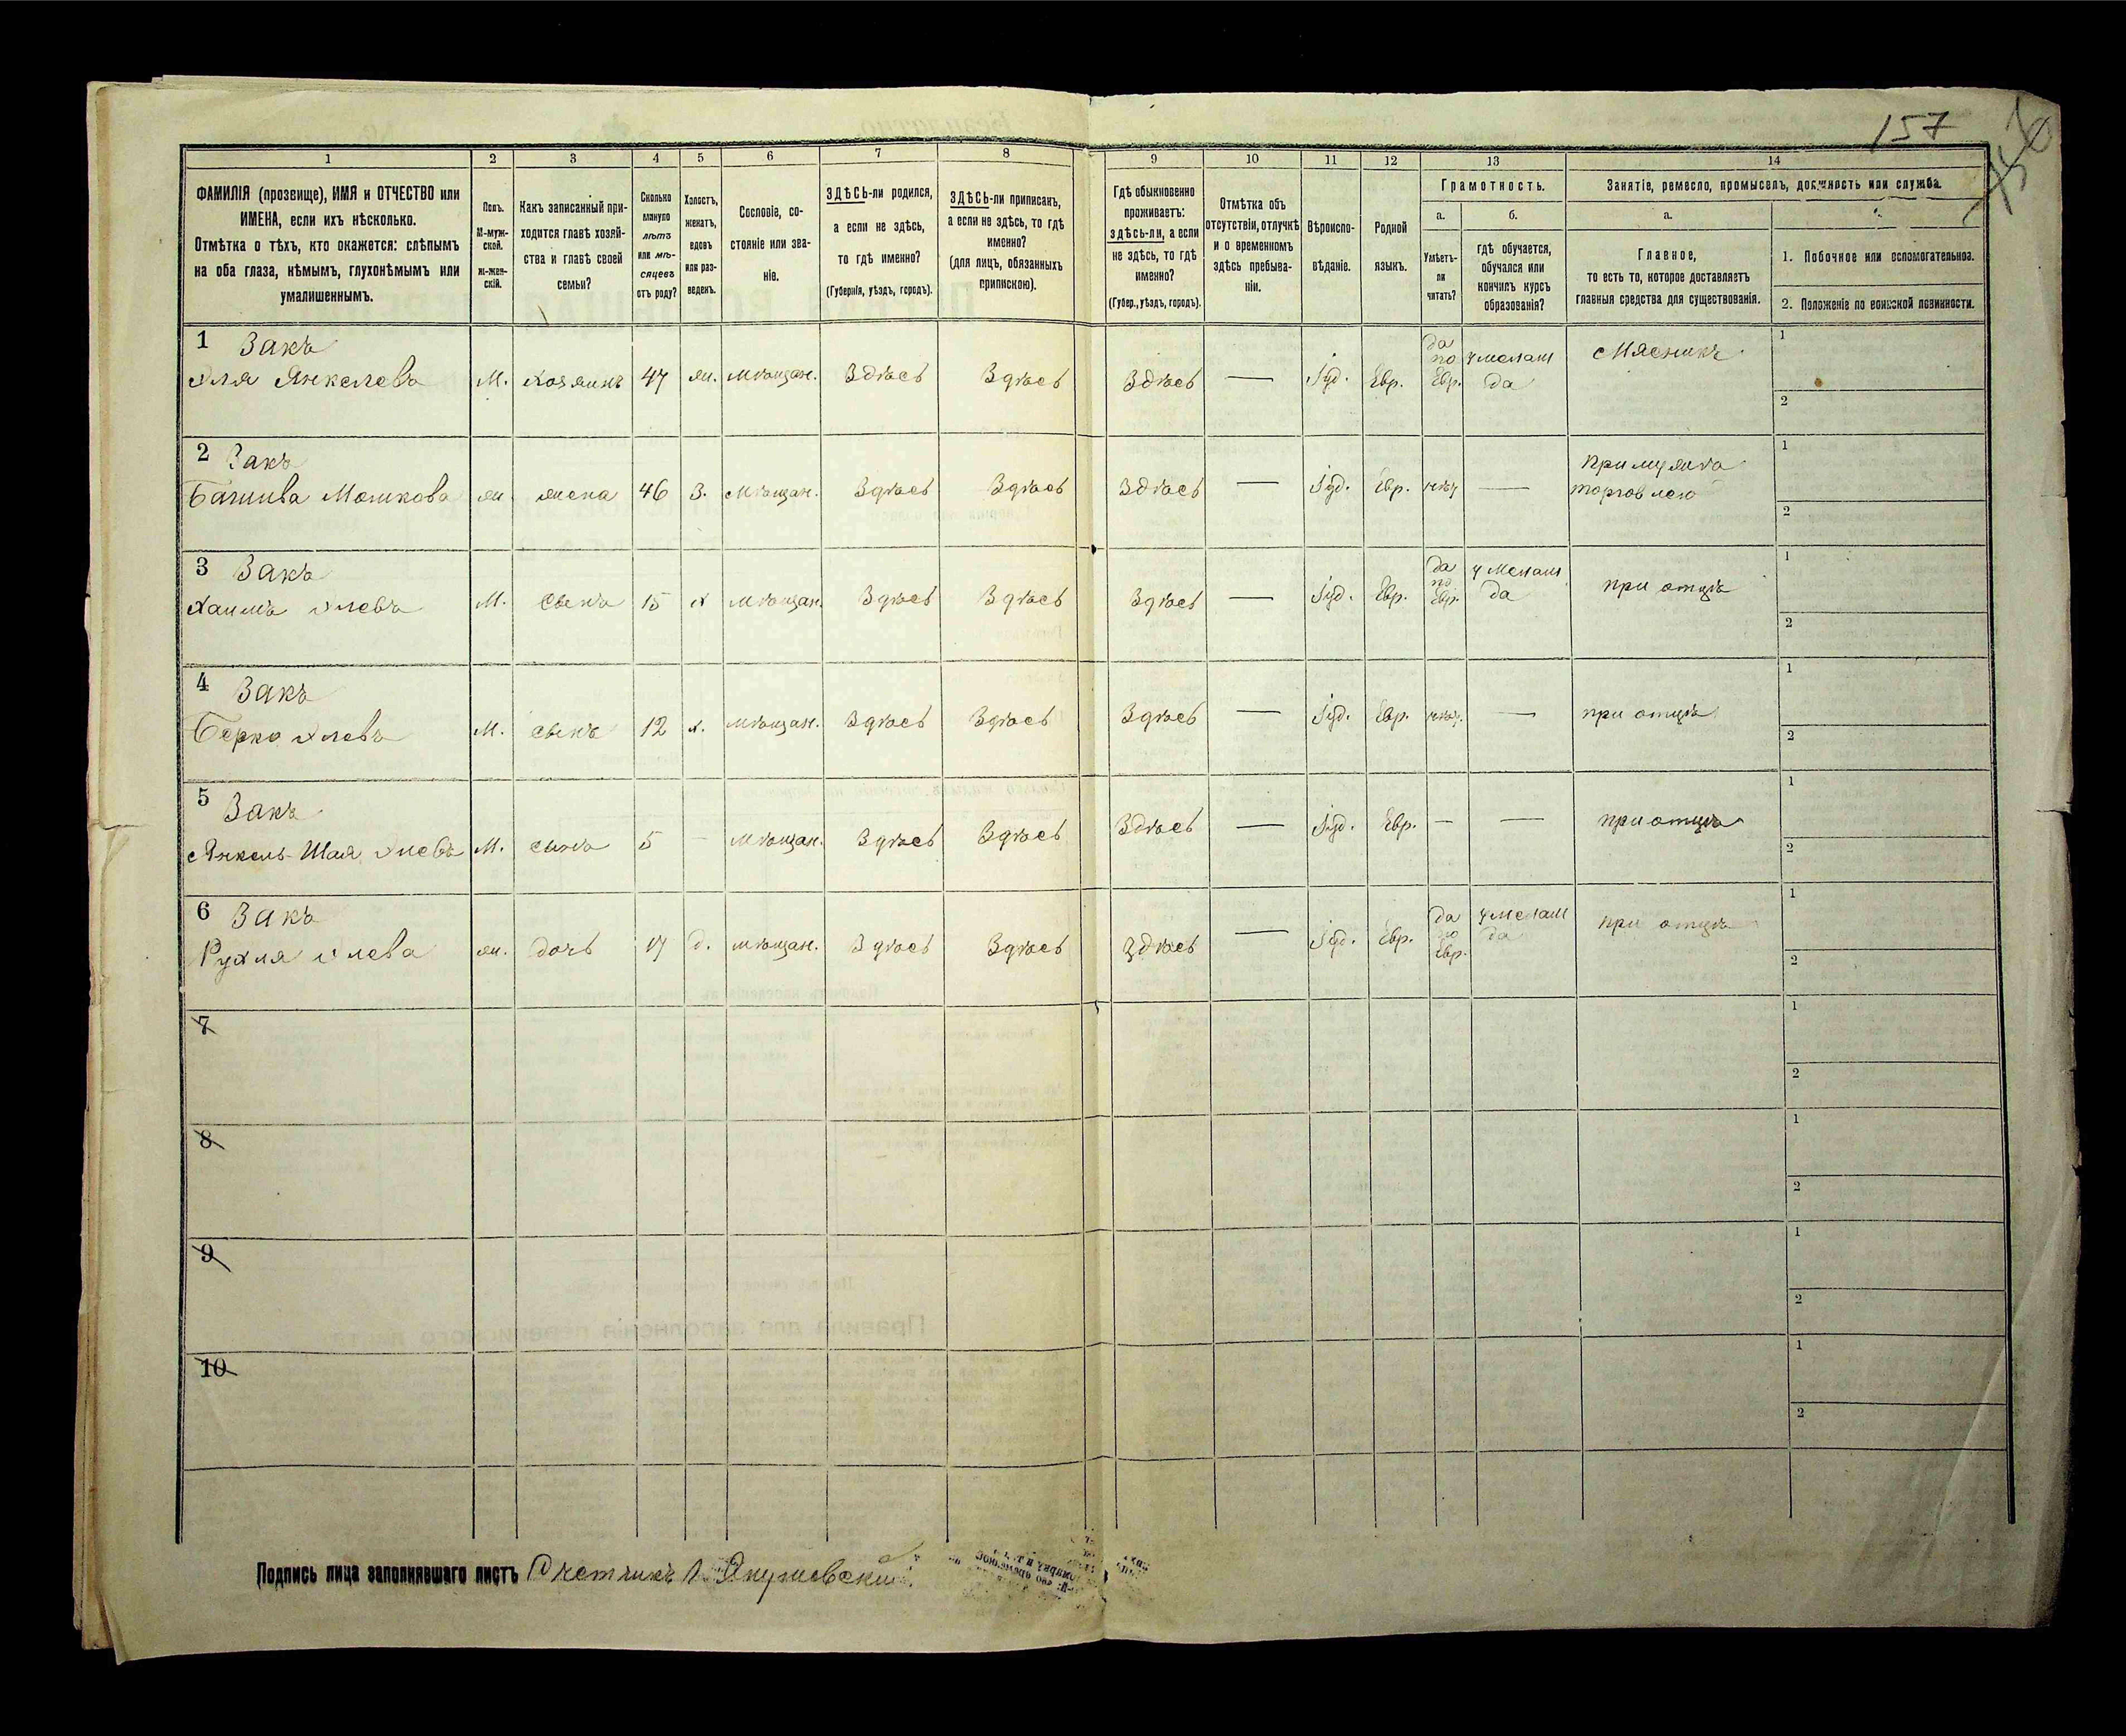 157
1 2 3 4 5 6 7 8 9 10 11 12 13 14
ФАМИЛІЯ (прозвище), ИМЯ и ОТЧЕСТВО или
ИМЕНА, если ихъ нѣсколько.
Отмѣтка о тѣхъ, кто окажется: слѣпымъ
на оба глаза, нѣмымъ, глухонѣмымъ или
умалишеннымъ.
Полъ.
М-муж-
ской.
ж-жен-
скій.
Какъ записанный при-
ходится главѣ хозяй-
ства и главѣ своей
семьи?
Сколько
минуло
лѣтъ
или мѣ-
сяцевъ
отъ роду?
Холостъ,
женатъ,
вдовъ
или раз-
веденъ.
Сословіе, со-
стояніе или зва-
ніе.
ЗДѢСЬ-ли родился,
а если не здѣсь,
то гдѣ именно?
(Губернія, уѣздъ, городъ).
ЗДѢСЬ-ли приписанъ,
а если не здѣсь, то гдѣ
именно?
(для лицъ, обязанныхъ
припискою).
Гдѣ обыкновенно
проживаетъ:
здѣсь-ли, а если
не здѣсь, то гдѣ
именно?
(Губер., уѣздъ, городъ).
Отмѣтка объ
отсутствіи, отлучкѣ
и о временномъ
здѣсь пребыва-
ніи.
Вѣроиспо-
вѣданіе.
Родной
языкъ.
Грамотность.
а.
Умѣетъ-
ли
читать?
б.
гдѣ обучается,
обучался или
кончилъ курсъ
образованія?
Занятіе, ремесло, промыселъ, должность или служба.
а.
Главное,
то есть то, которое доставляетъ
главныя средства для существованія.
1. Побочное или вспомогательное.
2. Положеніе по воинской повинности.
1 Закъ
Эля Янкелевъ М. хозяинъ 47 жн. мѣщан. Здѣсь Здѣсь Здѣсь — Іуд. Евр. да по Евр. у мелам да Мясникъ 1 2
2 Закъ
Башива Мошкова жн. жена 46 з. мѣщан. Здѣсь Здѣсь Здѣсь — Іуд. Евр. нѣт — при мужѣ торговлею 1 2
3 Закъ
Хаимъ Элевъ М. сынъ 15 х мѣщан. Здѣсь Здѣсь Здѣсь — Іуд. Евр. да по Евр. у мелам да при отцѣ 1 2
4 Закъ
Берко Элевъ М. сынъ 12 х. мѣщан. Здѣсь Здѣсь Здѣсь — Іуд. Евр. нѣт. — при отцѣ 1 2
5 Закъ
Янкель-Шая Элевъ М. сынъ 5 — мѣщан. Здѣсь Здѣсь Здѣсь — Іуд. Евр. — — при отцѣ 1 2
6 Закъ
Рухля Элева жн. дочь 17 д. мѣщан. Здѣсь Здѣсь здѣсь — Іуд. Евр. да по Евр. у мелам да при отцѣ 1 2
7 1 2
8 1 2
9 1 2
10 1 2
Подпись лица заполнявшаго листъ Счетчикъ